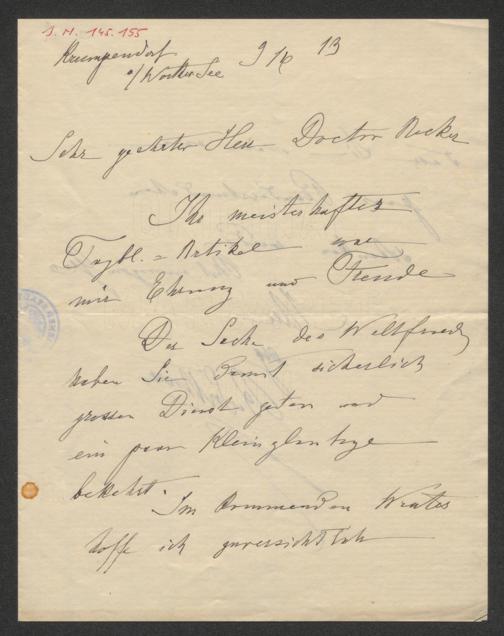 I. N. 145.155
Krumpendorf
a/Worther See
9/6 13
Sehr geehrter Herr Doctor Necker
Ihr meisterhafter
Tagbl.=Artikel war
mir Ehrung und Freude
Der Sache des Weltfried
haben Sie damit sicherlich
grossen Dienst getan und
ein paar Kleingläubige
bekehrt.
Im kommenden Winter
hoffe ich zuversichtlich